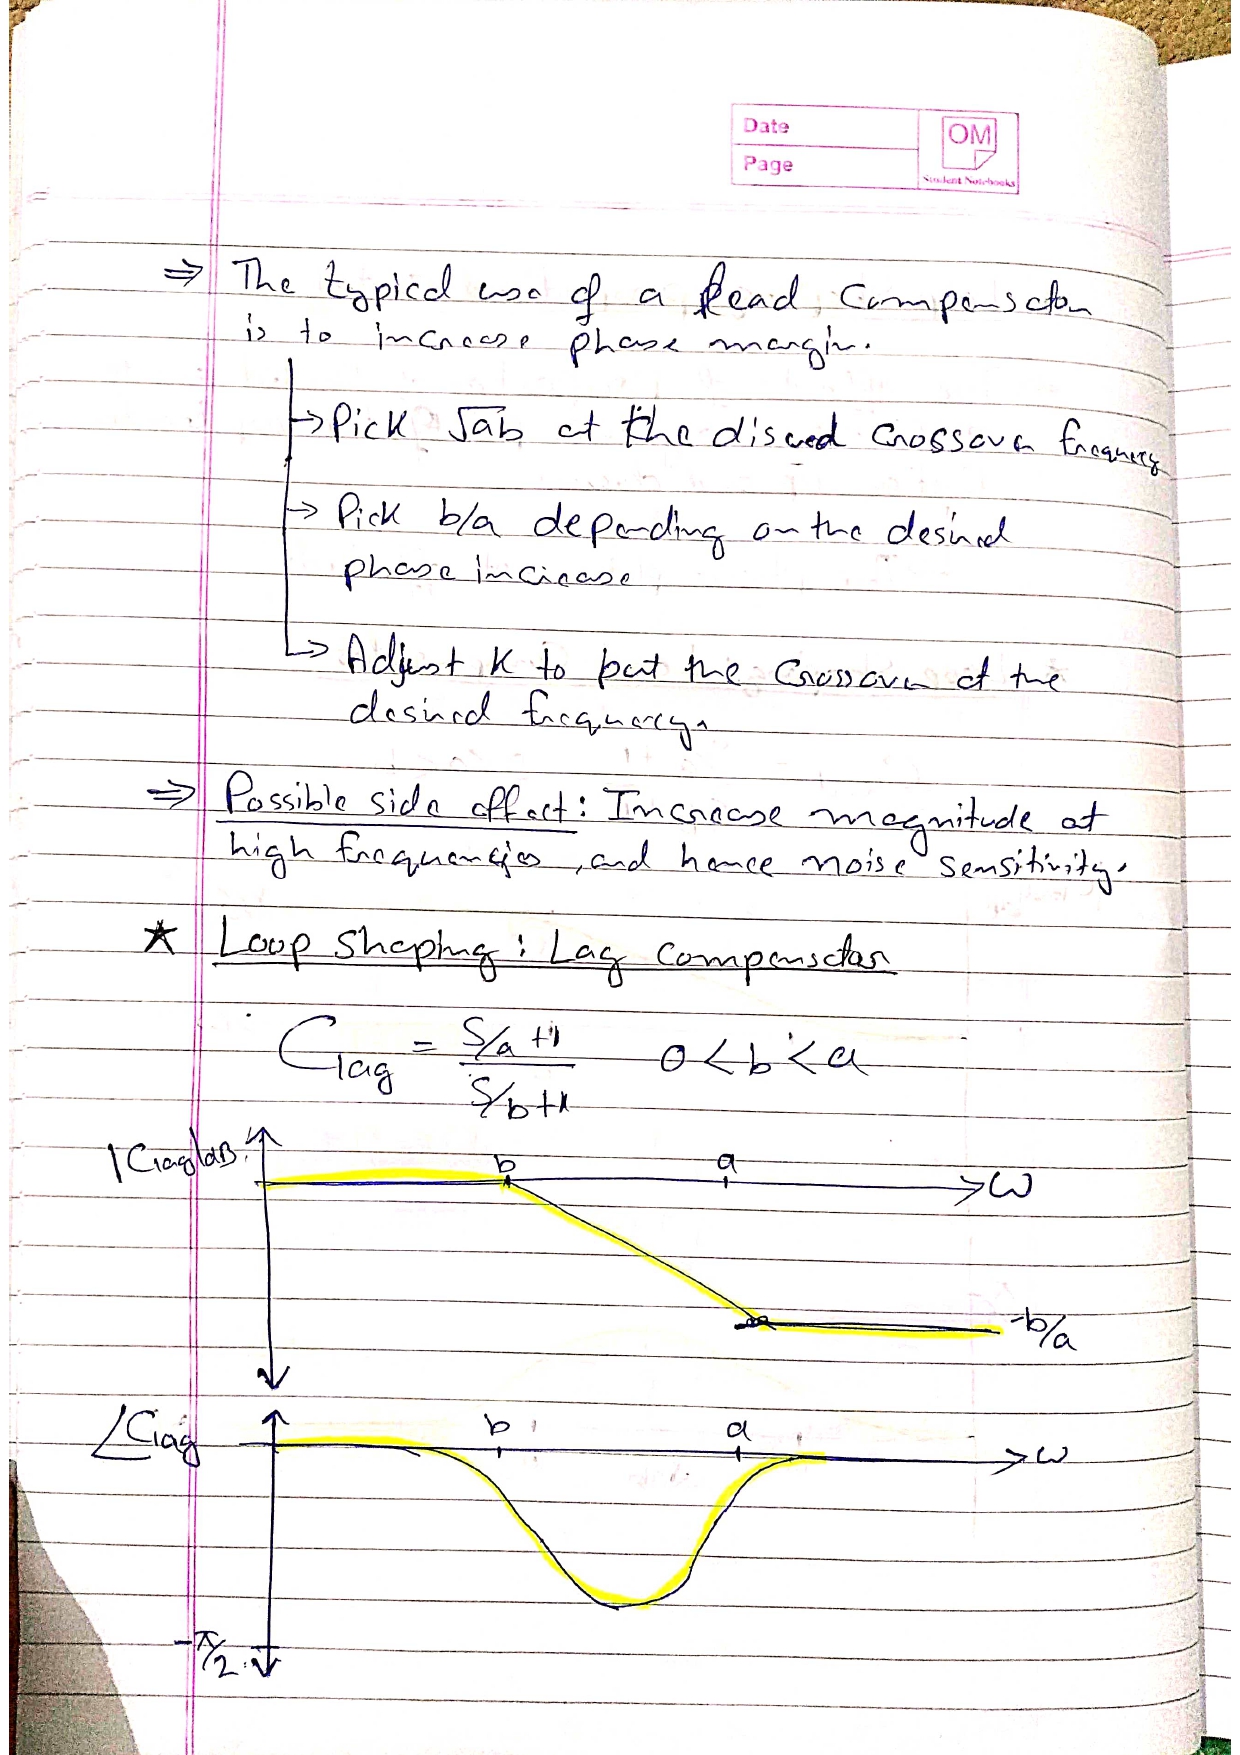 Date
Page
OM
Student Notebooks
⇒ The typical use of a Lead Compensator
is to increase phase margin.
→ Pick √ab at the desired crossover frequency
→ Pick b/a depending on the desired
phase increase
→ Adjust K to put the Crossover at the
desired frequency.
⇒ Possible side effect: Increase magnitude at
high frequencies, and hence noise sensitivity.
★ Loop Shaping: Lag Compensator
Clag = S/a +1 0<b<a
S/b+1
|Clag|dB b a ω
-b/a
∠Clag b a ω
-π/2